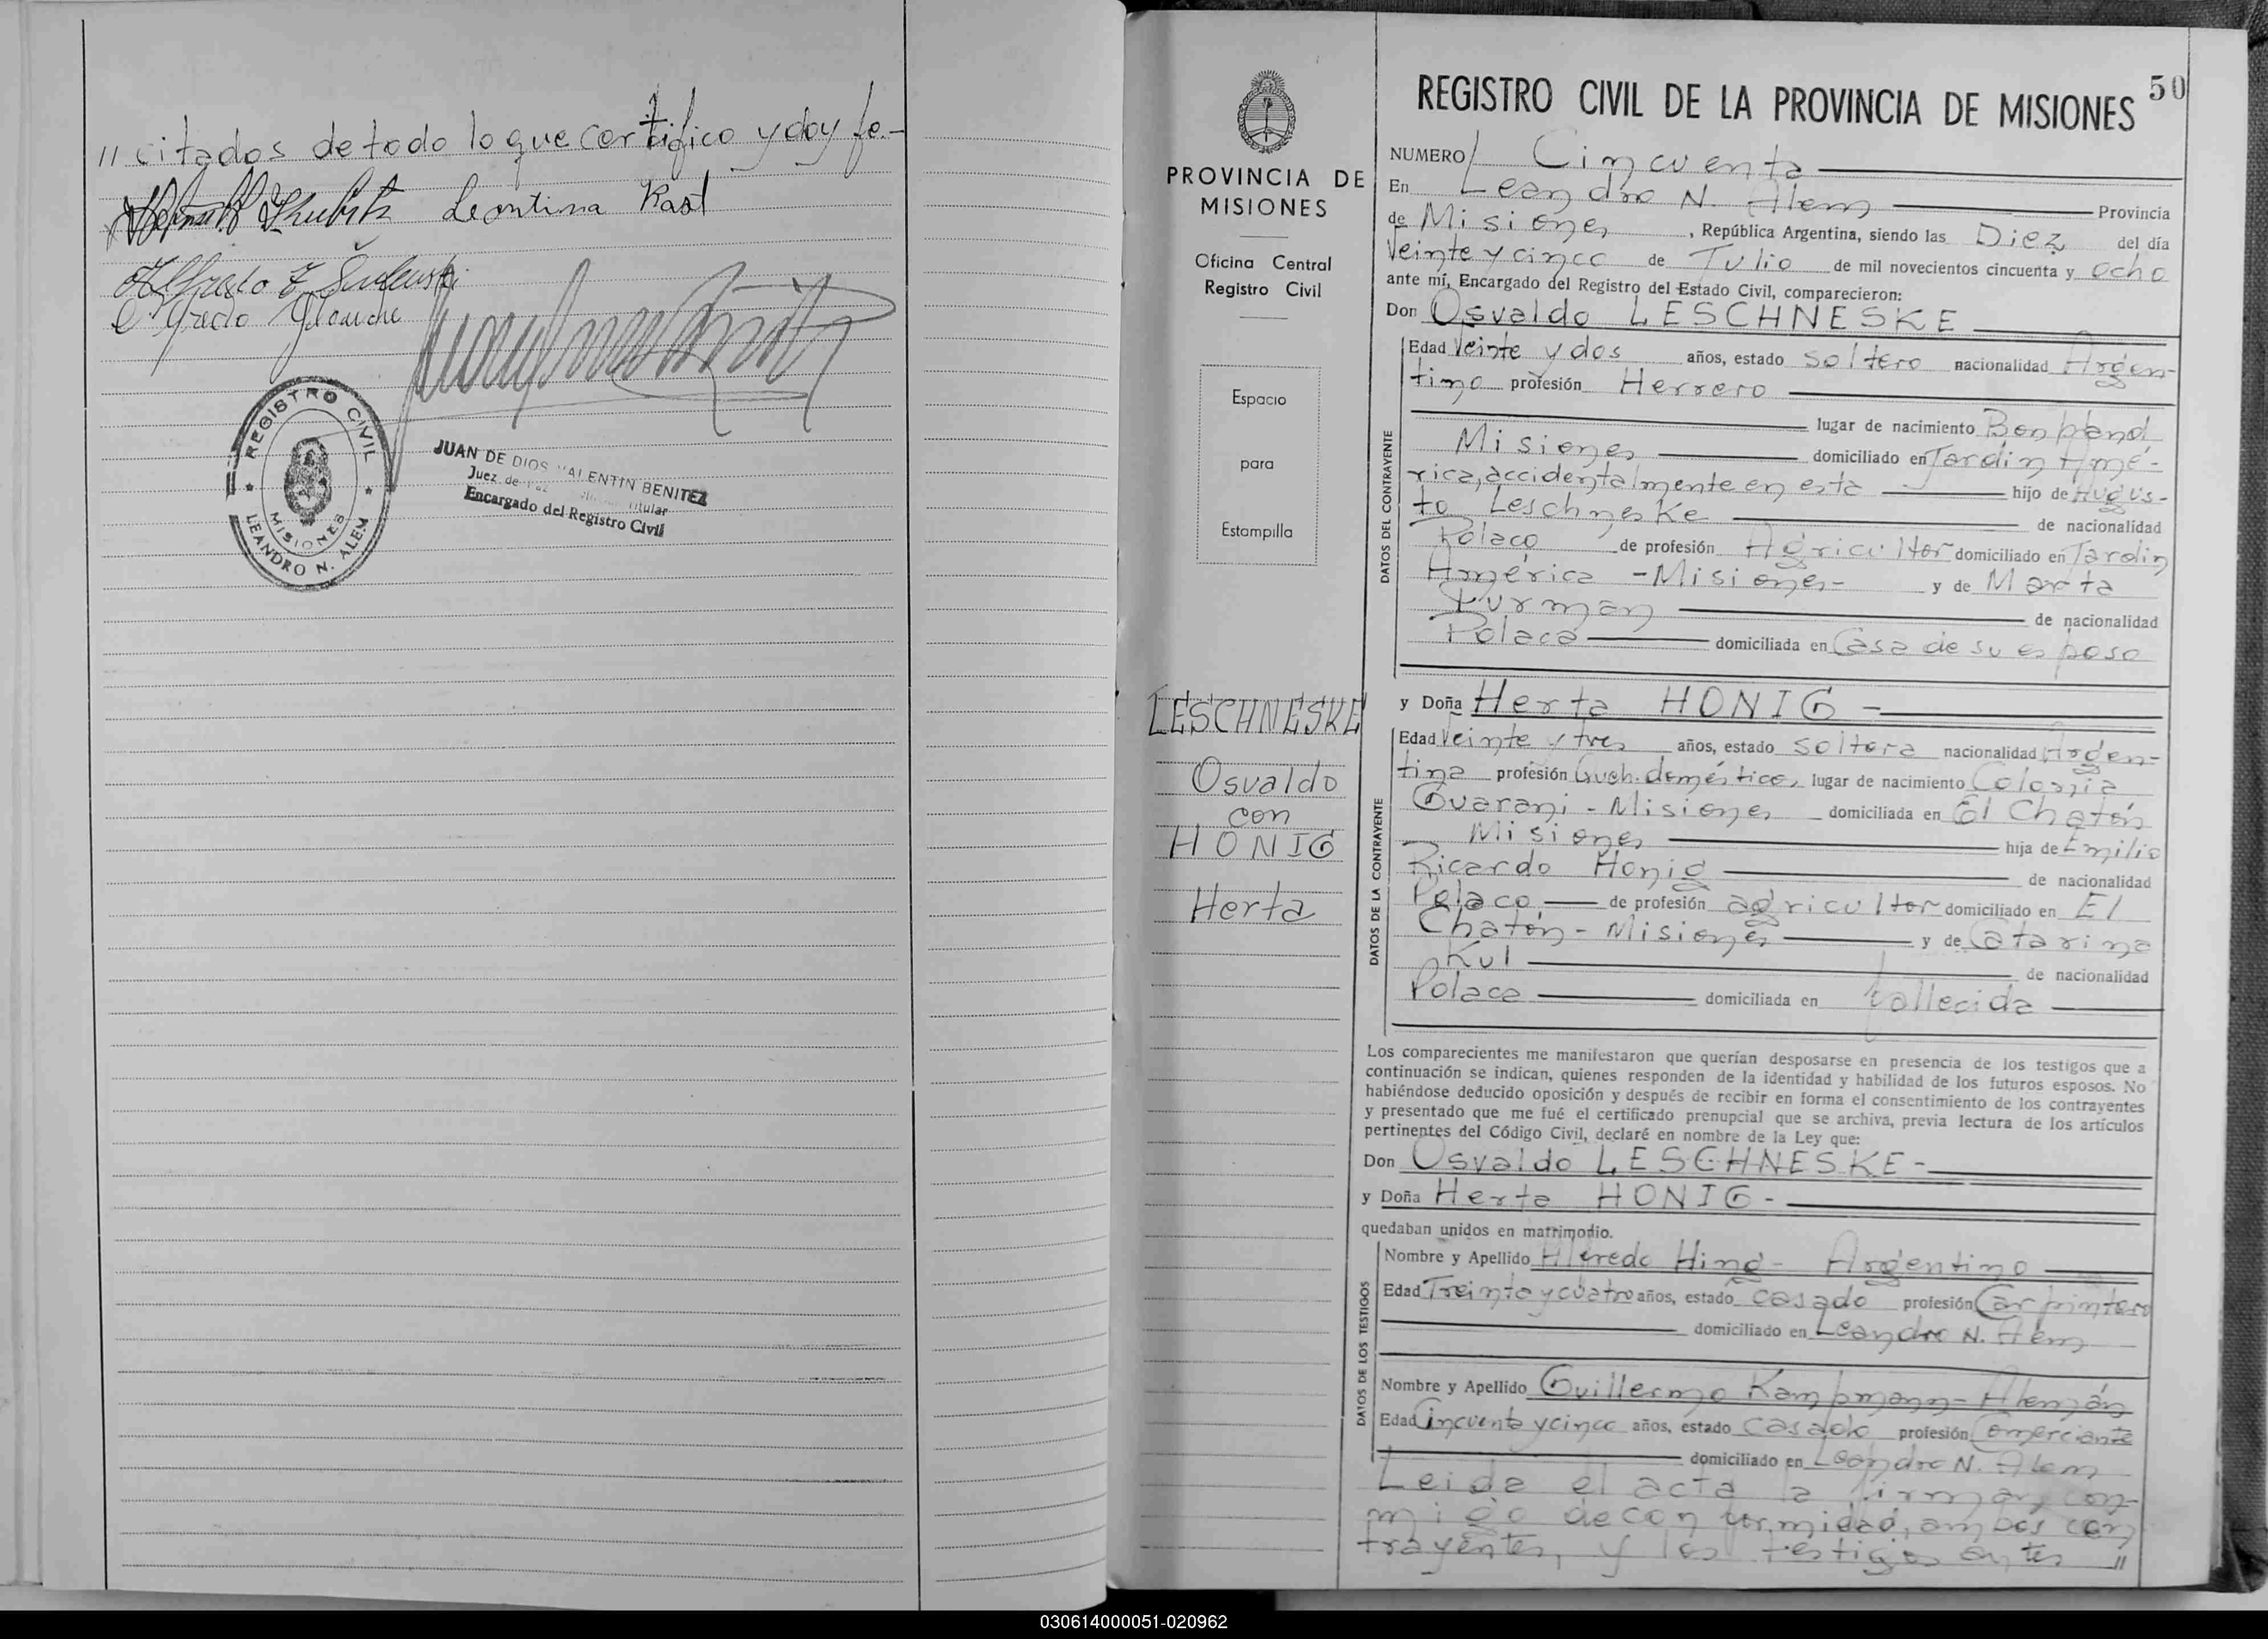 // citados de todo lo que certifico y doy fe.-
Leontina Rast
REGISTRO CIVIL
MISIONES
LEANDRO N. ALEM
JUAN DE DIOS VALENTIN BENITEZ
Juez de Paz Titular
Encargado del Registro Civil
PROVINCIA DE
MISIONES
Oficina Central
Registro Civil
Espacio
para
Estampilla
LESCHNESKE
Osvaldo
con
HONIG
Herta
50
REGISTRO CIVIL DE LA PROVINCIA DE MISIONES
NUMERO Cincuenta
En Leandro N. Alem Provincia
de Misiones, República Argentina, siendo las Diez del día
Veinte y cinco de Julio de mil novecientos cincuenta y ocho
ante mí, Encargado del Registro del Estado Civil, comparecieron:
Don Osvaldo LESCHNESKE
DATOS DEL CONTRAYENTE
Edad Veinte y dos años, estado soltero nacionalidad Argen-
tino profesión Herrero
lugar de nacimiento Bonpland
Misiones domiciliado en Jardin Amé-
rica, accidentalmente en esta hijo de Augus-
to Leschneske de nacionalidad
Polaco de profesión Agricultor domiciliado en Jardin
América - Misiones - y de Marta
Furman de nacionalidad
Polaca domiciliada en Casa de su esposo
y Doña Herta HONIG -
DATOS DE LA CONTRAYENTE
Edad Veinte y tres años, estado soltera nacionalidad Argen-
tina profesión Queh. domésticos lugar de nacimiento Colonia
Guarani - Misiones domiciliada en El Chatón
Misiones hija de Emilio
Ricardo Honig de nacionalidad
Polaco de profesión agricultor domiciliado en El
Chatón - Misiones y de Catarina
Kul de nacionalidad
Polaca domiciliada en fallecida
Los comparecientes me manifestaron que querían desposarse en presencia de los testigos que a
continuación se indican, quienes responden de la identidad y habilidad de los futuros esposos. No
habiéndose deducido oposición y después de recibir en forma el consentimiento de los contrayentes
y presentado que me fué el certificado prenupcial que se archiva, previa lectura de los artículos
pertinentes del Código Civil, declaré en nombre de la Ley que:
Don Osvaldo LESCHNESKE -
y Doña Herta HONIG -
quedaban unidos en matrimodio.
DATOS DE LOS TESTIGOS
Nombre y Apellido Alfredo Hing - Argentino
Edad Treinta y cuatro años, estado casado profesión Carpintero
domiciliado en Leandro N. Alem
Nombre y Apellido Guillermo Kampmann - Alemán
Edad Cincuenta y cinco años, estado casado profesión Comerciante
domiciliado en Leandro N. Alem
Leida el acta la firman con-
migo de conformidad, ambos con
trayentes, y los testigos antes //
030614000051-020962